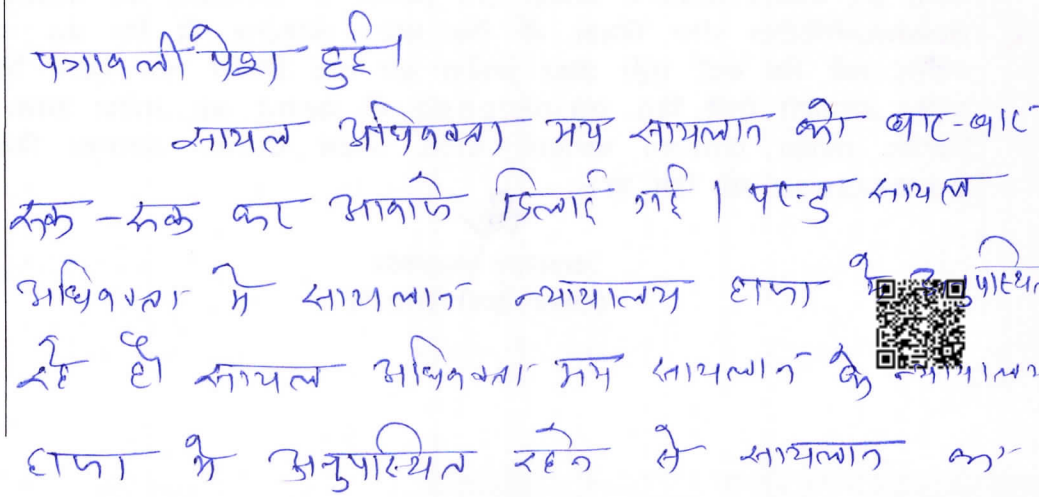 पत्रावली पेश हुई।
सायल अधिवक्ता मय सायलान को बार-बार
रूक-रूक कर आवाजे दिलाई गई। परन्तु सायल
अधिवक्ता मे सायलान न्यायालय हाजा मे अनुपस्थित
रहे है। सायल अधिवक्ता मय सायलान के न्यायालय
हाजा मे अनुपस्थित रहने से सायलान का